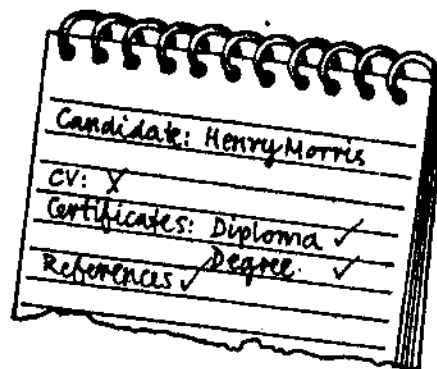 Candidate: Henry Morris
CV: X
Certificates: Diploma ✓
Degree. ✓
References ✓